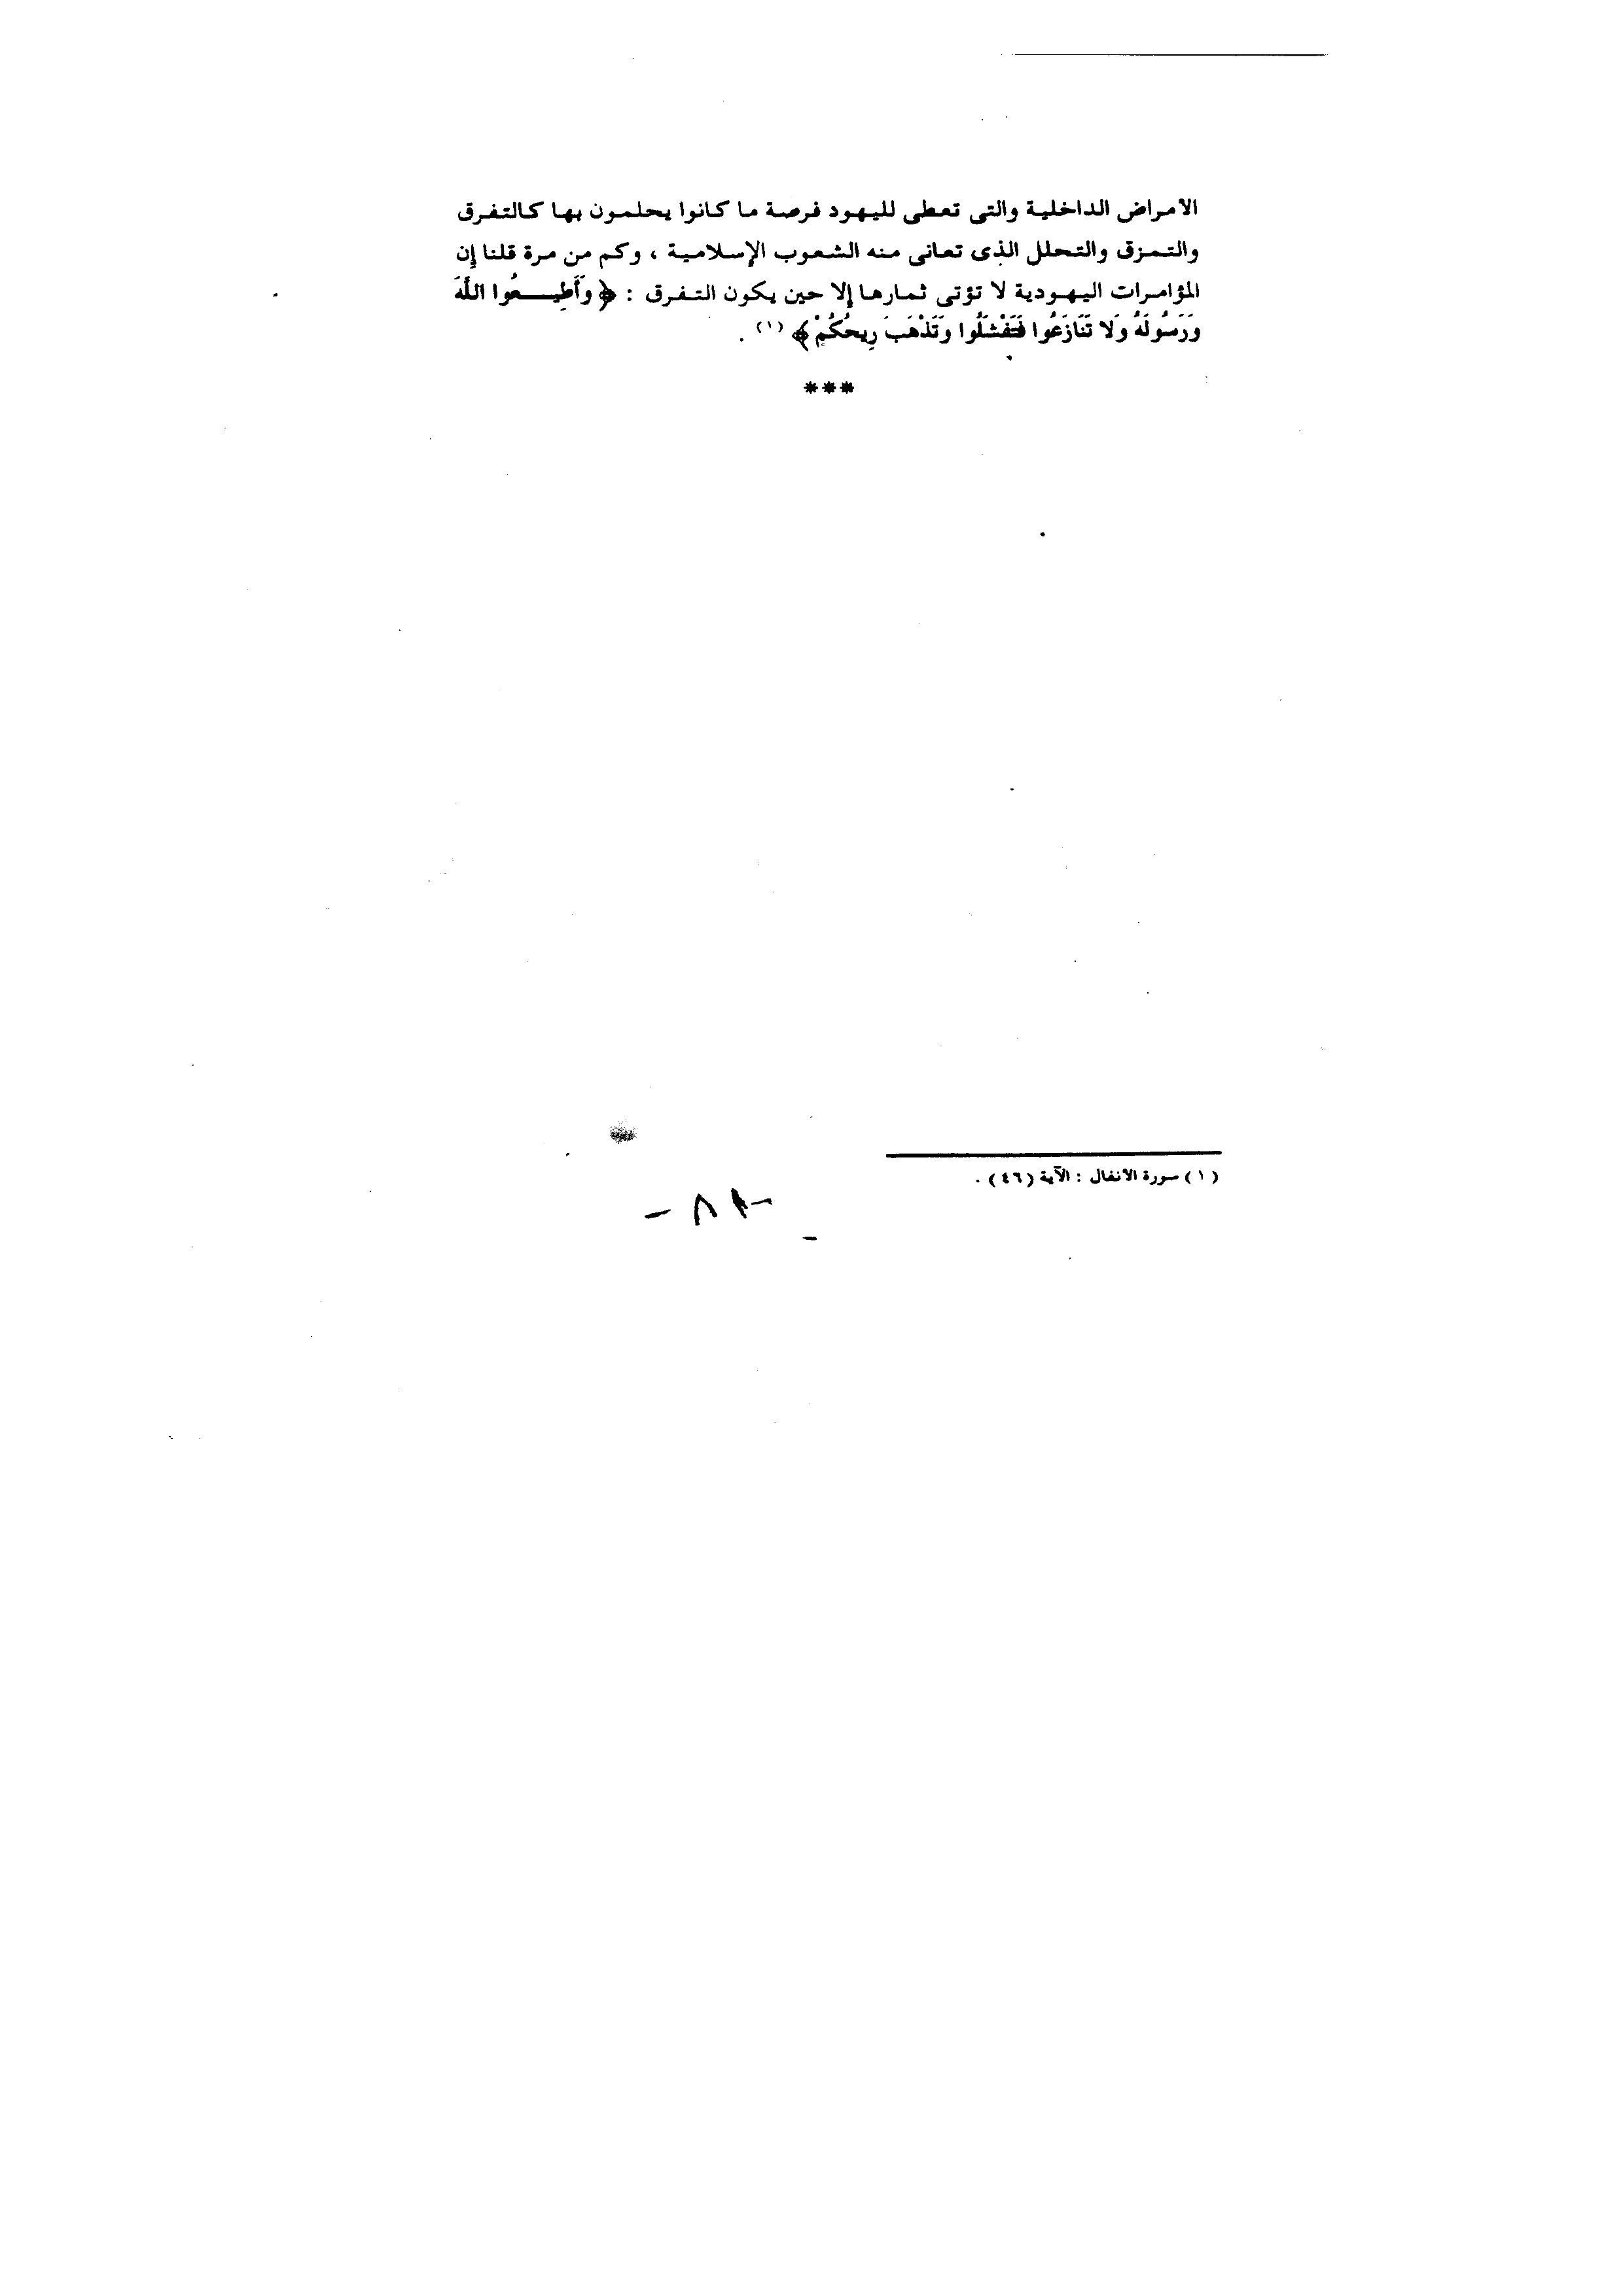 الامراض الداخلية والتى تعطى لليهود فرصة ما كانوا يحلمون بها كالتفرق
والتمزق والتحلل الذى تعانى منه الشعوب الإسلامية ، وكم من مرة قلنا إن
المؤامرات اليهودية لا تؤتى ثمارها إلا حين يكون التفرق : ﴿ وَأَطِيعُوا اللَّهَ
وَرَسُولَهُ وَلا تَنَازَعُوا فَتَفْشَلُوا وَتَذْهَبَ رِيحُكُمْ ﴾ (١) .
***
(١) سورة الانفال : الآية (٤٦) .